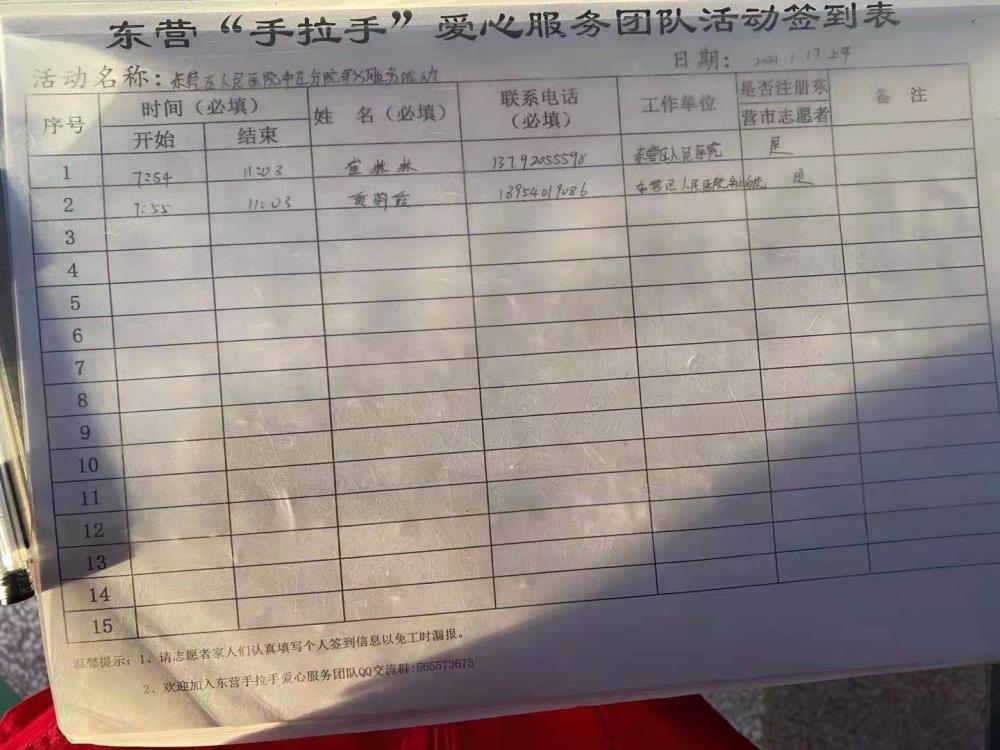 东营“手拉手”爱心服务团队活动签到表
活动名称：东营区人民医院 服务活动 日期：2021.1.17上午
序号 时间（必填） 姓 名（必填） 联系电话（必填） 工作单位 是否注册东营市志愿者 备 注
开始 结束
1 7:54 11:03 崔 13792055598 东营区人民医院 是
2 7:55 11:03 18954019086 东营区人民医院 是
3
4
5
6
7
8
9
10
11
12
13
14
15
温馨提示：1、请志愿者家人们认真填写个人签到信息以免工时漏报。
2、欢迎加入东营手拉手爱心服务团队QQ交流群:565573675